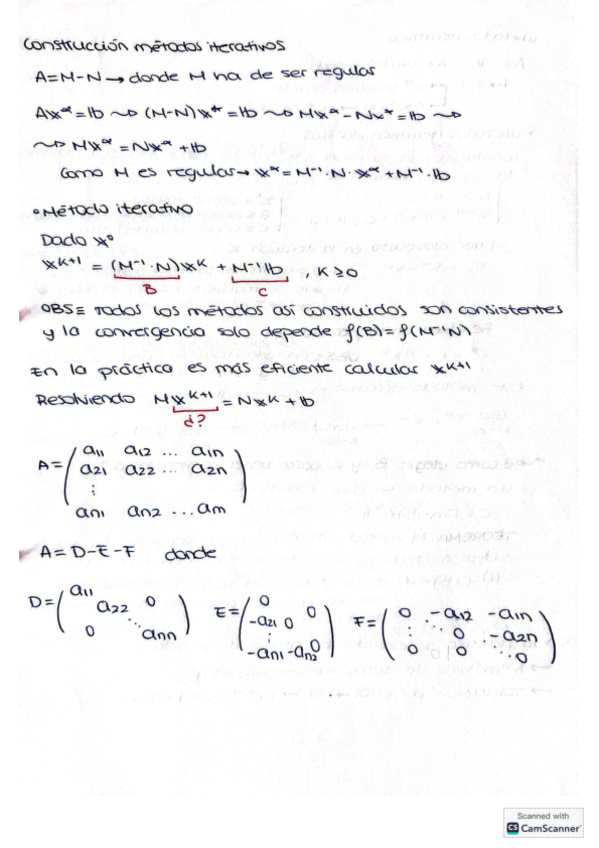 Construcción métodos iterativos
A=M-N → donde M ha de ser regular
Ax*=b ⤳ (M-N)x*=b ⤳ Mx*-Nx*=b ⤳
⤳ Mx*=Nx*+b
Como M es regular → x*=M⁻¹·N·x*+M⁻¹·b
•Método iterativo
Dado x⁰
x^{k+1} = (M⁻¹·N)x^k + M⁻¹b, k≥0
B C
OBS≡ Todos los métodos así construidos son consistentes
y la convergencia solo depende ρ(B)=ρ(M⁻¹N)
En la práctica es más eficiente calcular x^{k+1}
Resolviendo Mx^{k+1}=Nx^k+b
¿?
A=( a11 a12 ... a1n
a21 a22 ... a2n
⋮
an1 an2 ... ann )
A=D-E-F donde
D=( a11 a22 0 0 ⋱ ann ) E=( 0 0 -a21 0 ⋮ -an1 -an2 0 ) F=( 0 ..-a12 -a1n ⋮ ⋱ 0 ..-a2n 0 0 ⋱ 0 )
Scanned with
CS CamScanner